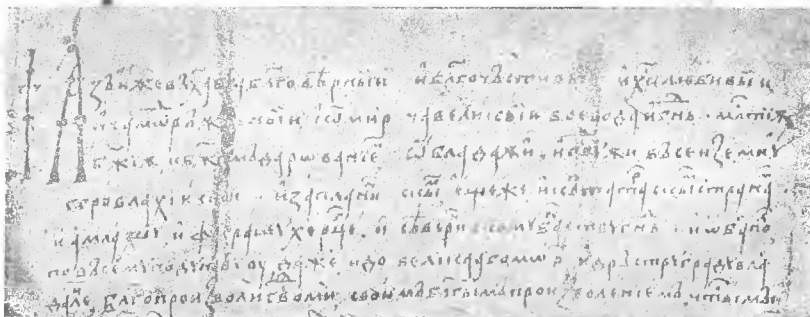 Азъ иже въ х҃а б҃а бл҃говѣрныи и бл҃гочьстивыи и х҃олюбивыи и
самѡдръжавныи іѡ мирча великыи воевода и гн҃ъ мл҃стїѫ
б҃жїеѫ и б҃жїемь дарѡванїемь ѡбладаѫи и гс҃твуѫи въсеи земли
ѹгровлахїискои и запланинскыи еще же и къ татарскыимъ странамь
и амлашу и фаграшу херцегь и сѣверинскому банству гн҃ъ и ѡбапо
по въсему подунавїоу даже и до великаго морѣ и дръстру граду влада
далець благопроизволи гс҃тво ми своимь бл҃гыимь произволенїемь ч҃тыимь